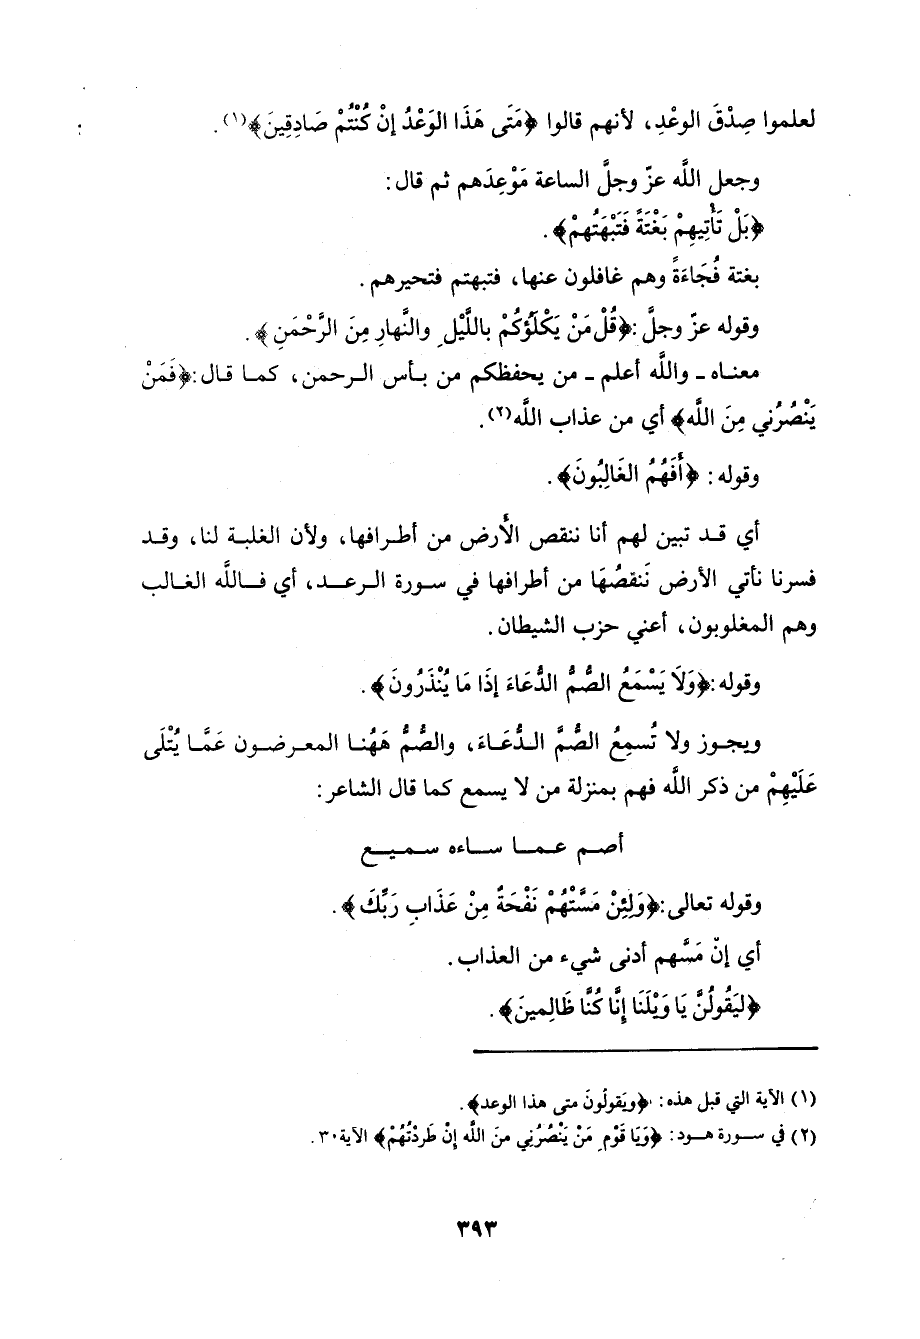 لعلموا صِدْقَ الوعْدِ، لأنهم قالوا ﴿مَتَى هَذَا الوَعْدُ إنْ كُنْتُمْ صَادِقِينَ﴾(١).
وجعل اللَّه عزّ وجلَّ الساعة مَوْعِدَهم ثم قال:
﴿بَلْ تَأْتِيهِمْ بَغْتَةً فَتَبْهَتُهمْ﴾.
بغتة فُجَاءَةً وهم غافلون عنها، فتبهتم فتحيرهم.
وقوله عزّ وجلَّ: ﴿قُلْ مَنْ يَكْلَؤُكُمْ باللَّيْلِ والنَّهارِ مِنَ الرَّحْمَنِ﴾.
معناه ـ واللَّه أعلم ـ من يحفظكم من بأس الرحمن، كما قال: ﴿فَمَنْ
يَنْصُرُني مِنَ اللَّه﴾ أي من عذاب اللَّه(٢).
وقوله: ﴿أَفَهُمُ الغَالِبُونَ﴾.
أي قد تبين لهم أنا ننقص الأَرض من أطرافها، ولأن الغلبة لنا، وقد
فسرنا نأتي الأرض نَنقصُهَا من أطرافها في سورة الرعد، أي فاللَّه الغالب
وهم المغلوبون، أعني حزب الشيطان.
وقوله: ﴿وَلَا يَسْمَعُ الصُّمُّ الدُّعَاءَ إذَا مَا يُنْذَرُونَ﴾.
ويجوز ولا تُسمِعُ الصُّمَّ الدُّعَاءَ، والصُّمُّ هَهُنا المعرضون عَمَّا يُتْلَى
عَلَيْهِمْ من ذكر اللَّه فهم بمنزلة من لا يسمع كما قال الشاعر:
أصم عما ساءه سميع
وقوله تعالى: ﴿وَلَئِنْ مَسَّتْهُمْ نَفْحَةٌ مِنْ عَذَابِ رَبِّكَ﴾.
أي إنّ مَسَّهم أدنى شيء من العذاب.
﴿لَيَقُولُنَّ يَا وَيْلَنَا إنَّا كُنَّا ظَالِمينَ﴾.
(١) الآية التي قبل هذه: ﴿ويَقولُونَ متى هذا الوعد﴾.
(٢) في سورة هود: ﴿وَيَا قَوْمِ مَنْ يَنْصُرُني منَ اللَّه إنْ طَردْتُهُمْ﴾ الآية ٣٠.
٣٩٣